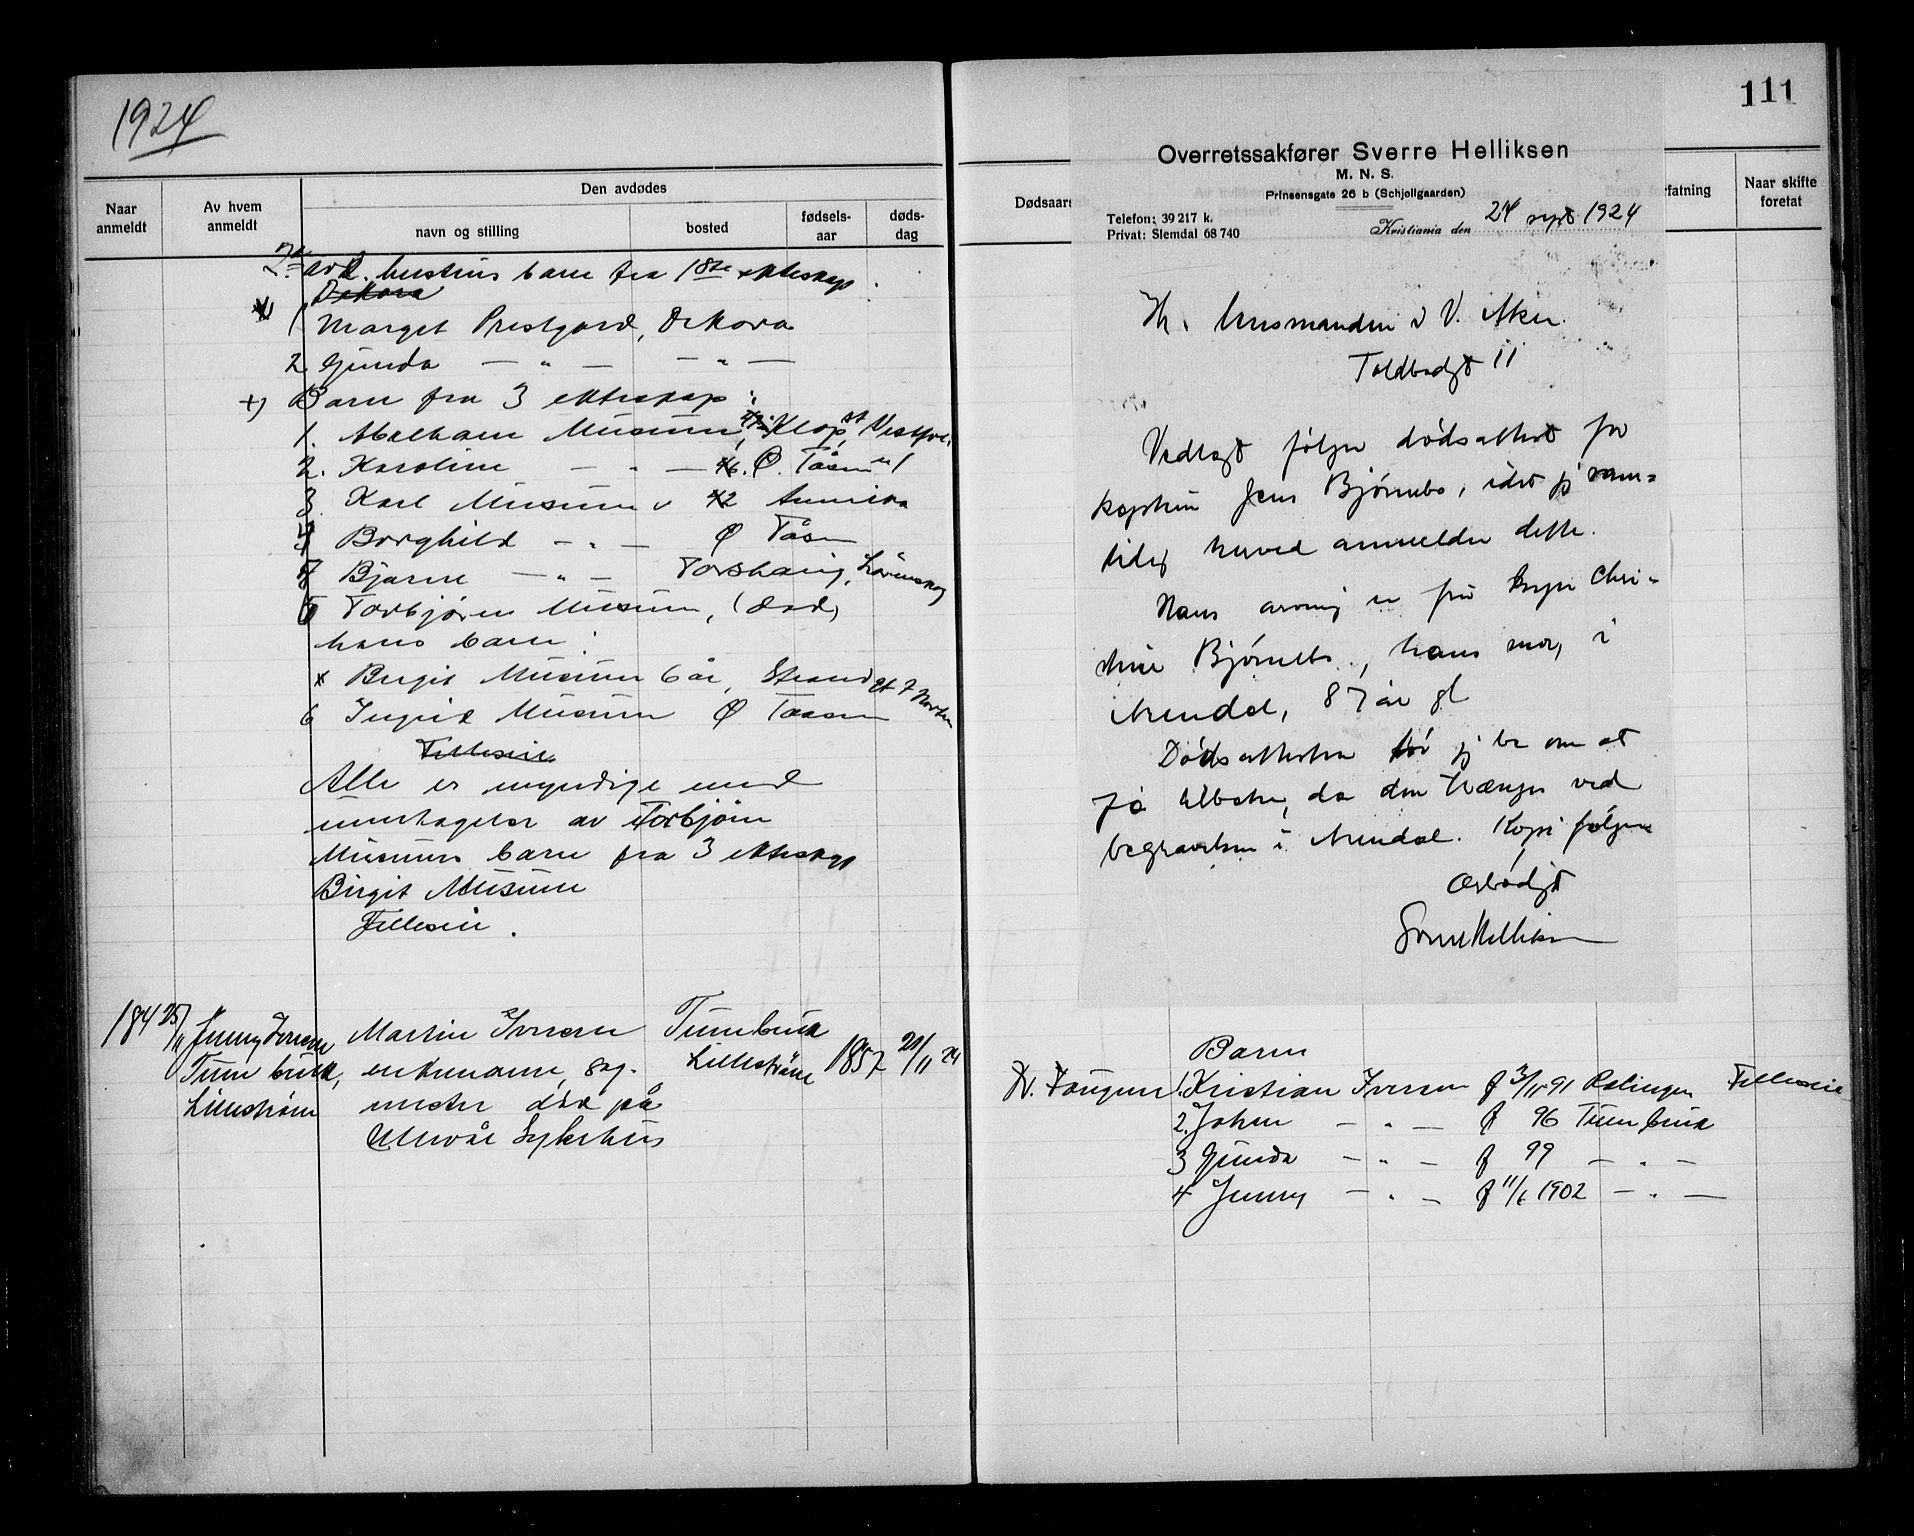 1924
Naar anmeldt
Av hvem anmeldt
Den avdødes
navn og stilling
bosted
fødsels-aar
døds-dag
2. avd. hustrus barn fra 1ste ekteskap:
Dekora
1 Marget Prestgard, Dekora
2. Gunda — " — — " —
+) Barn fra 3 ekteskap:
1. Abelham Musum,
2. Karoline — " — 46. Ø. Tåsen
3 Karl Musum 42 Amerika
4 Borghild — " — Ø Tåsen
5 Bjarne — " — Torshaug, Lörenskog
Torbjørn Musum, (död)
hans barn:
x Birgit Musum 6 år, Strandgt 7
6 Ingrid Musum Ø Taasen
Felleseie
Alle er myndige med
undtagelse av Torbjörn
Musums barn fra 3 ekteskap
Birgit Musum
Felleseie.
184 25/11 Jenny Iversen
Tuen bruk,
Lillestrøm
Martin Iversen
enkemann, sag-
mester død på
Ullevål Sykehus
Tuen bruk
Lillestrøm
1857 21/11 24
111
Dødsaars
rfatning
Naar skifte foretat
Overretssakfører Sverre Helliksen
M. N. S.
Prinsensgate 26 b (Schjellgaarden)
Telefon: 39 217 k.
Privat: Slemdal 68 740
Kristiania den 24 sept 1924
Hr. Lensmanden i V. Aker.
Toldbodgt 11
Vedlagt følger dødsattest for
kaptein Jens Bjørnebo, idet jeg sam-
tidig herved anmelder dette.
Hans arving er fru Chri-
stine Bjørnebo, hans mor, i
Arendal, 87 år gl
Dødsattesten tør jeg be om at
få tilbake, da den trænges ved
begravelsen i Arendal. Kopi følger
Ærbødigst
Sverre Helliksen
Barn
1. Kristian Iversen f 3/11 91 Rælingen Felleseie
2. Johan — " — f 96 Tuen bruk
3 Gunda — " — f 99 — " —
4 Jenny — " — f 11/6 1902 — " —